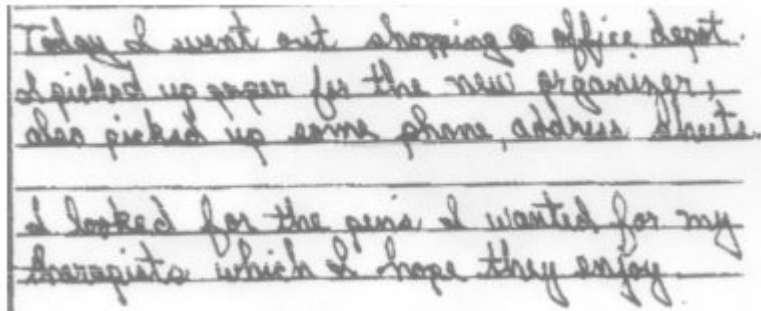 Today I went out shopping @ office depot.
I picked up paper for the new organizer,
also picked up some phone, address sheets.
I looked for the pens I wanted for my
therapists which I hope they enjoy.